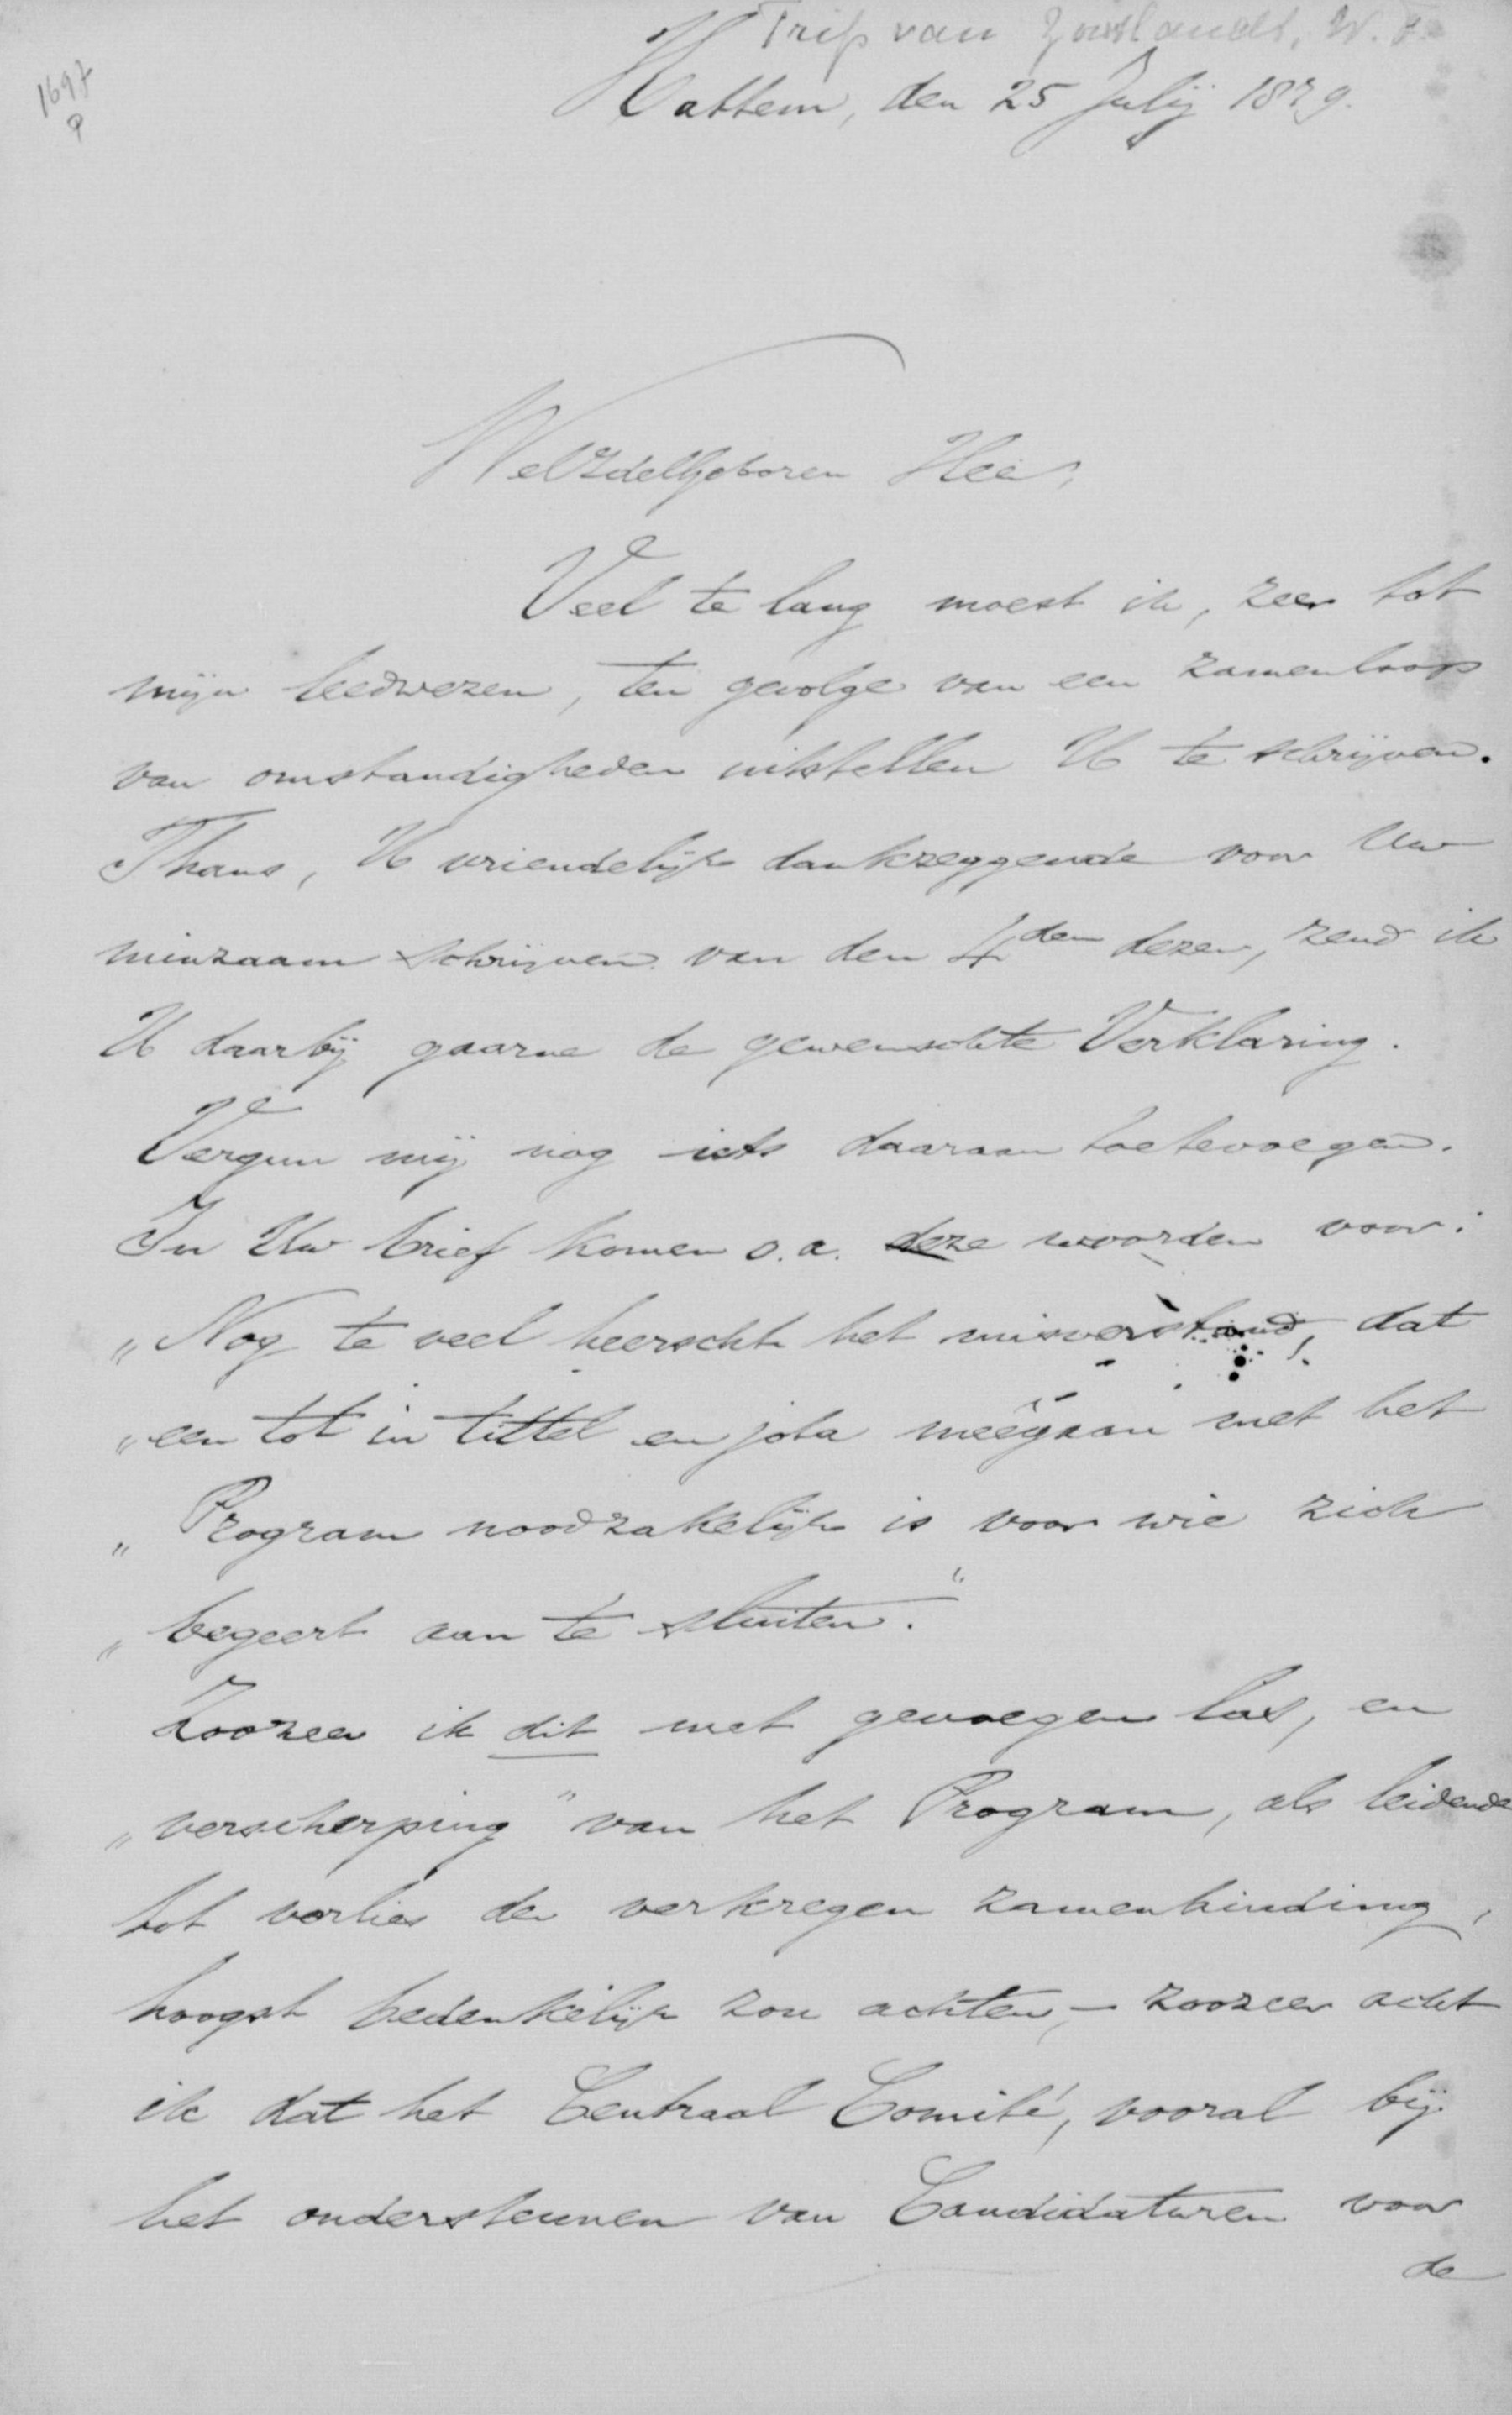 Trip van Zoutlandt, W. F.
1697
Hattem, den 25 Julij 1879.
WelEdelGeboren Heer,
Veel te lang moest ik, zeer tot
mijn leedwezen, ten gevolge van een zamenloop
van omstandigheden uitstellen U te schrijven.
Thans, U vriendelijk dankzeggende voor Uw
minzaam schrijven van den 4den dezer, zend ik
U daarbij gaarne de gewenschte Verklaring.
Vergun mij nog iets daaraan toetevoegen.
In Uw brief komen o.a. deze woorden voor:
„Nog te veel heerscht het misverstand, dat
„een tot in tittel en jota meêgaan met het
„Program noodzakelijk is voor wie zich
„begeert aan te sluiten."
Zoozeer ik dit met genoegen las, en
„verscherping" van het Program, als leidende
tot verlies der verkregen zamenbinding,
hoogst bedenkelijk zou achten, – zoozeer acht
ik dat het Centraal Comité, vooral bij
het ondersteunen van Candidaturen voor
de